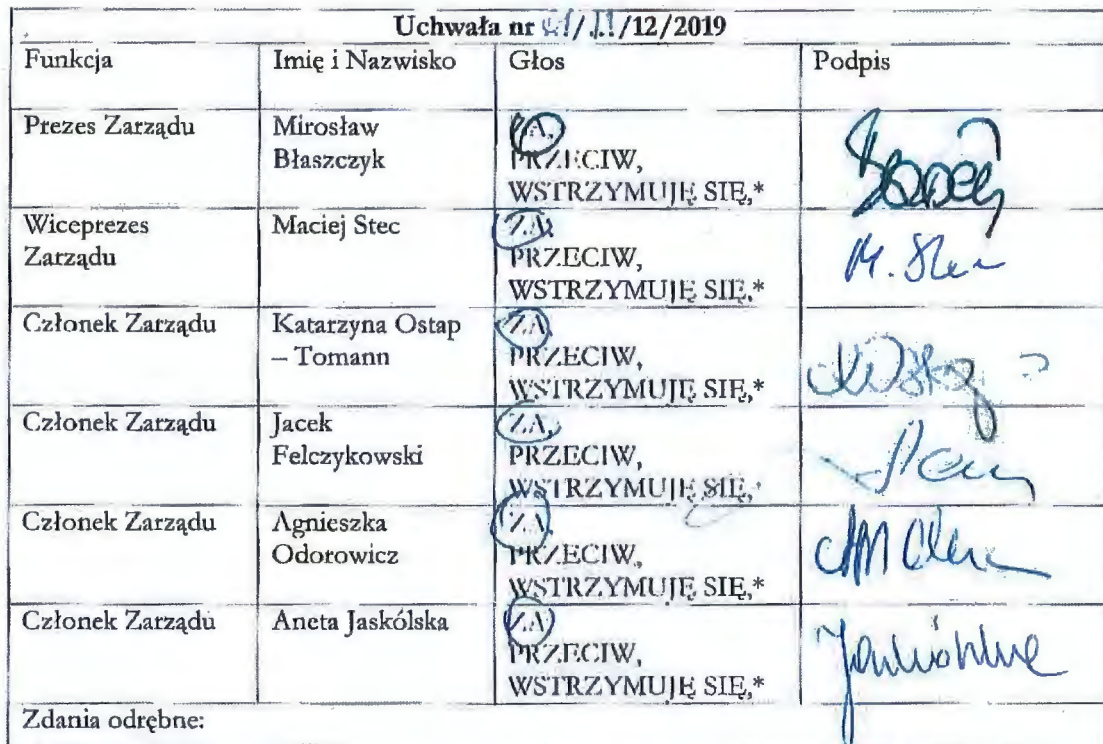 Uchwała nr /12/2019
Funkcja Imię i Nazwisko Głos Podpis
Prezes Zarządu Mirosław Błaszczyk ZA,
PRZECIW,
WSTRZYMUJĘ SIĘ,*
Wiceprezes Zarządu Maciej Stec ZA,
PRZECIW,
WSTRZYMUJĘ SIĘ,*
M. Stec
Członek Zarządu Katarzyna Ostap – Tomann ZA
PRZECIW,
WSTRZYMUJĘ SIĘ,*
Członek Zarządu Jacek Felczykowski ZA,
PRZECIW,
WSTRZYMUJĘ SIĘ,*
Członek Zarządu Agnieszka Odorowicz ZA,
PRZECIW,
WSTRZYMUJĘ SIĘ,*
Członek Zarządu Aneta Jaskólska ZA,
PRZECIW,
WSTRZYMUJĘ SIĘ,*
Zdania odrębne: